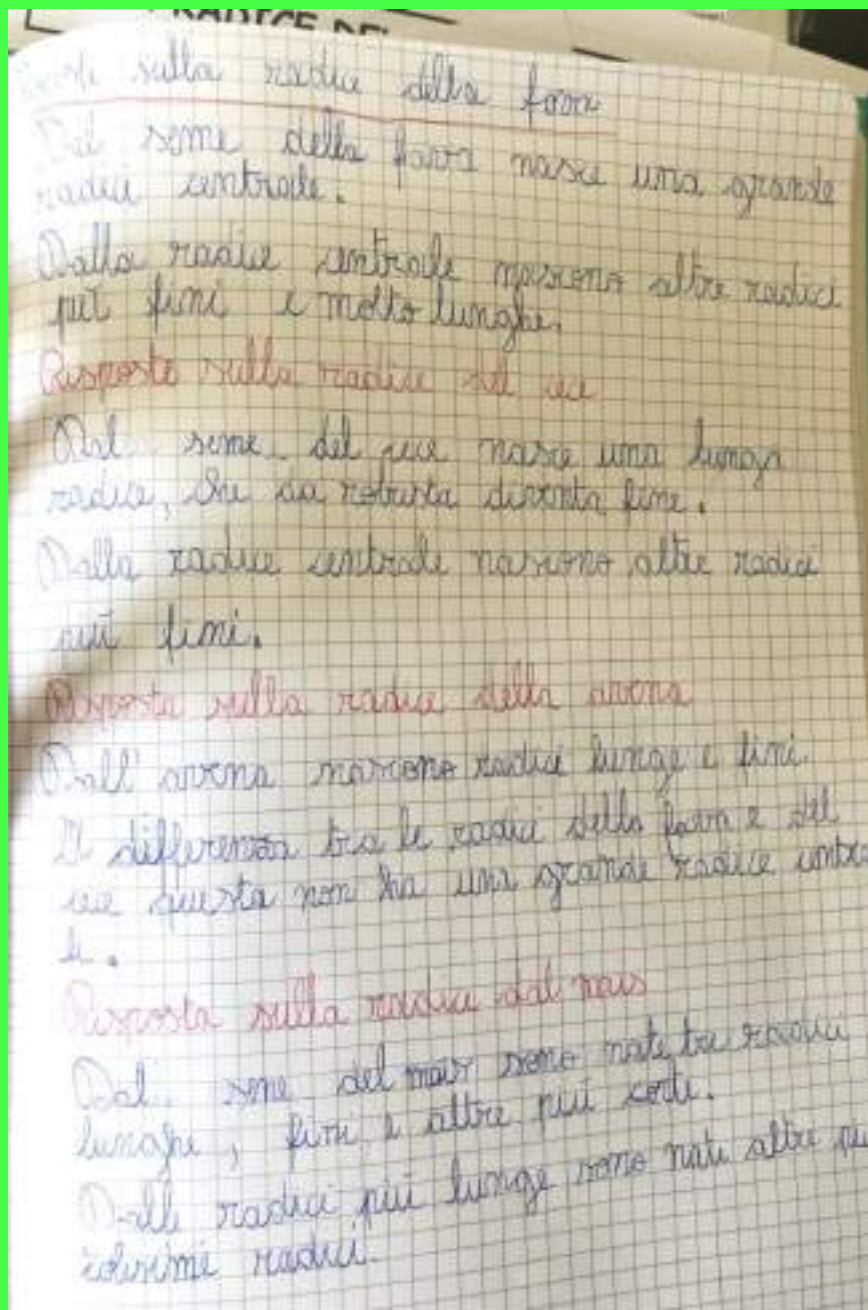 RADICE DEL
sulla radice della fava
Dal seme della fava nasce una grande
radici centrale.
Dalla radice centrale nascono altre radici
più fini e molto lunghe.
Risposte sulla radice del cece
Dal seme del cece nasce una lunga
radice, che da robusta diventa fine.
Dalla radice centrale nascono altre radici
più fini.
Risposta sulla radice della avena
Dall' avena nascono radici lunge e fini.
differenza tra le radici della fava e del
cece questa non ha una grande radice centra
le.
Risposta sulla radice dal mais
Dal seme del mais sono nate tre radici
lunghe, fini e altre più corte.
Dalle radici più lunge sono nate altre
radici.